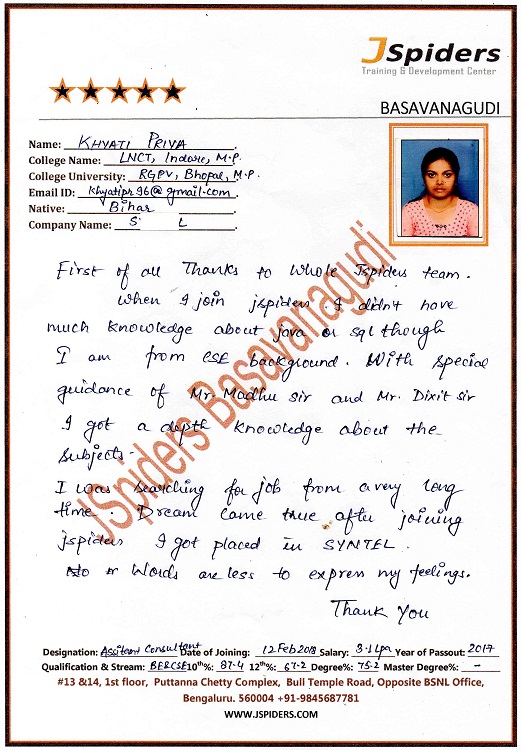 JSpiders
Training & Development Center
BASAVANAGUDI
Name: KHYATI PRIYA
College Name: LNCT, Indore, M.P.
College University: RGPV, Bhopal, M.P.
Email ID: khyatipr96@gmail.com
Native: Bihar
Company Name: S L
First of all Thanks to whole Jspiders team.
When I join jspiders. I didn't have
much knowledge about java or sql though
I am from CSE background. With special
guidance of Mr. Madhu sir and Mr. Dixit sir
I got a depth knowledge about the
subjects.
I was searching for job from a very long
time. Dream came true after joining
jspiders I got placed in SYNTEL.
No Words are less to express my feelings.
Thank You
JSpiders Basavanagudi
Designation: Assitant Consultant Date of Joining: 12 Feb 2018 Salary: 3.1 Lpa Year of Passout: 2017
Qualification & Stream: BE/CSE 10th%: 87.4 12th%: 67.2 Degree%: 75.2 Master Degree%: -
#13 &14, 1st floor, Puttanna Chetty Complex, Bull Temple Road, Opposite BSNL Office,
Bengaluru. 560004 +91-9845687781
WWW.JSPIDERS.COM